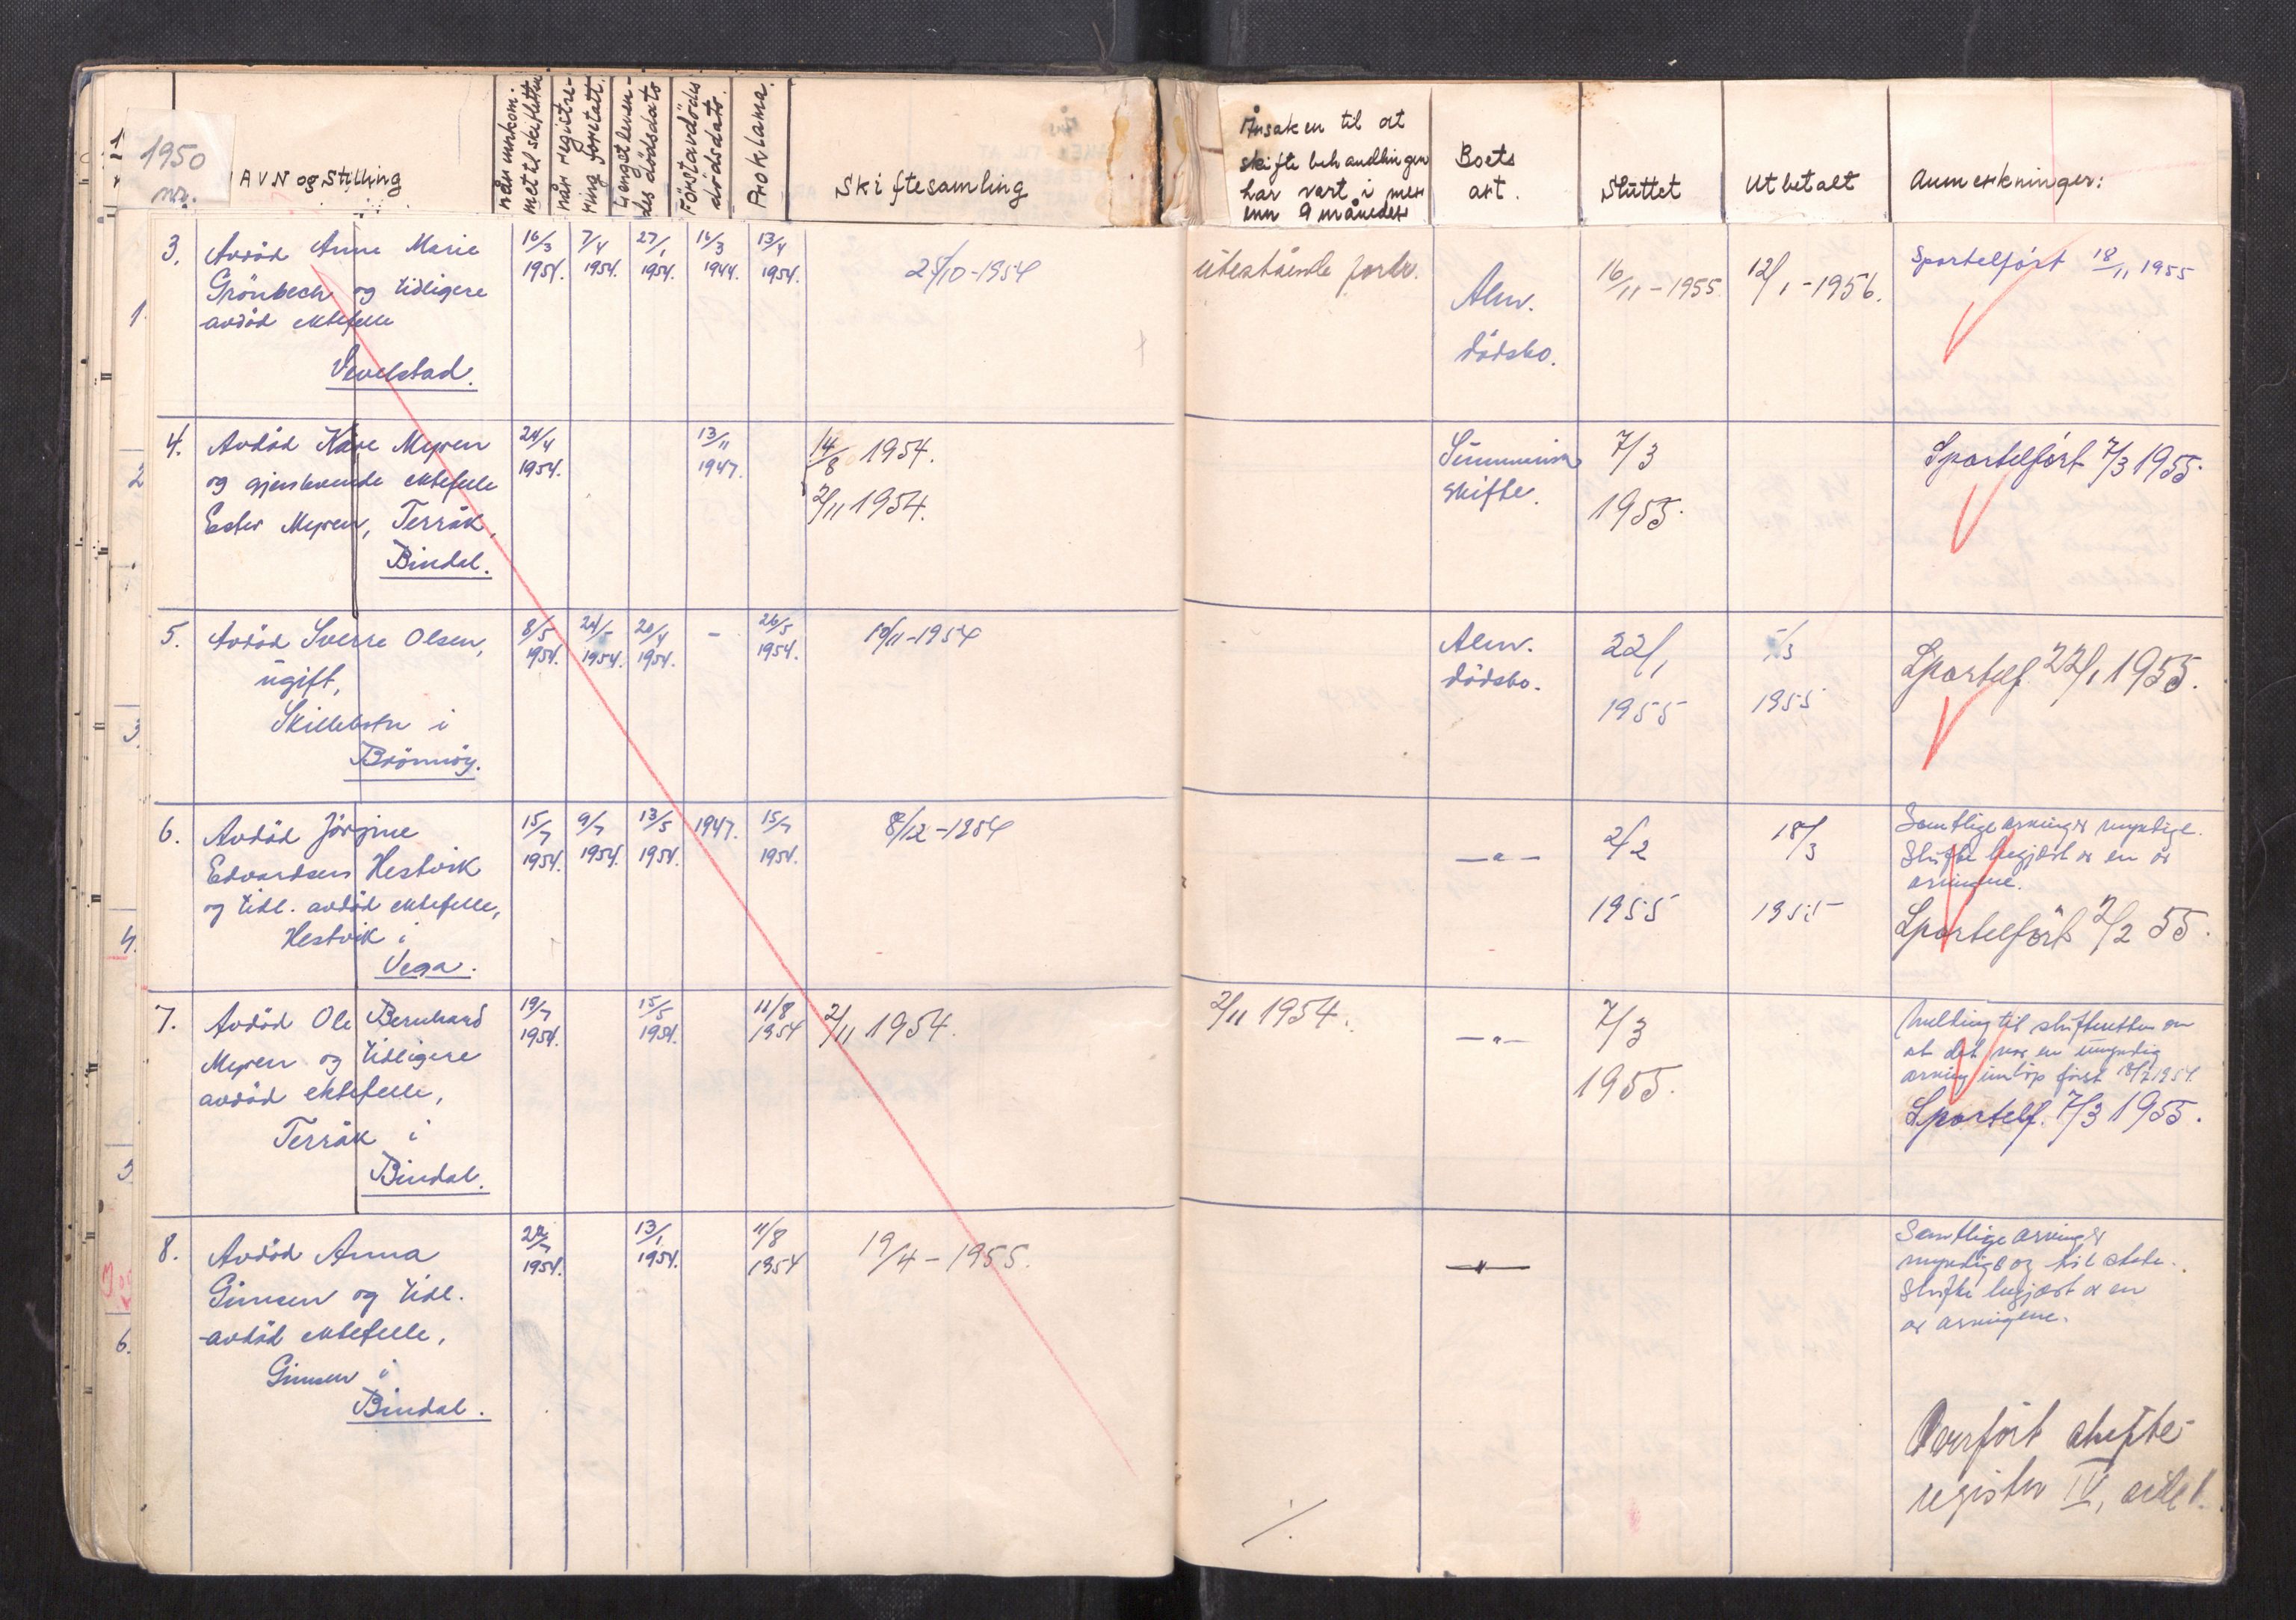 1950
nr.
AVN og Stilling
når innkom-
met til skifteretten
når registre-
ring foretatt.
Lengstleven-
des dödsdato
Förstavdödes
dödsdato.
Proklama.
Skiftesamling
Årsaken til at
skiftebehandlingen
har vart i mer
enn 9 måneder
Boets
art.
Sluttet
Utbetalt
Anmerkninger:
3. Avdöd Anne Marie
Grönbech og tidligere
avdöd ektefelle
Vevelstad.
16/3 1954.
7/4 1954.
27/1 1954.
16/3 1944.
13/4 1954.
25/10-1954
utestående fordr.
Alm.
dödsbo.
16/11-1955
12/1-1956.
Sportelfört 18/11 1955
4. Avdöd Kåre Myren
og gjenlevende ektefelle
Ester Myren, Terråk,
Bindal.
24/4 1954.
13/11 1947.
14/8 1954.
2/11 1954.
Summarisk
skifte.
7/3
1955.
Sportelfört 7/3 1955.
5. Avdöd Sverre Olsen,
ugift,
Skillebotn i
Brönnöy.
8/5 1954.
24/- 1954.
20/4 1954.
-
26/5 1954.
10/11-1954
Alm.
dödsbo.
22/1
1955
5/3
1955
Sportelf. 22/1 1955.
6. Avdöd Jörgine
Edvardsen Hestvik
og tidl. avdöd ektefelle,
Hestvik i
Vega.
15/7 1954.
9/7 1954.
13/5 1954.
1947.
15/7 1954.
8/12-1954
—"—
2/2
1955
18/3
1955
Samtlige arvinger myndige.
Skifte begjært av en av
arvingene.
Sportelfört 2/2 55.
7. Avdöd Ole Bernhard
Myren og tidligere
avdöd ektefelle,
Terråk i
Bindal.
19/7 1954.
15/5 1954.
11/8 1954
2/11 1954.
2/11 1954.
—"—
7/3
1955.
Melding til skifteretten om
at det var en umyndig
arving innlöp först 18/7 1954.
Sportelf. 7/3 1955.
8. Avdöd Anna
Gimsen og tidl.
avdöd ektefelle,
Gimsen i
Bindal.
22/7 1954.
13/1 1954.
11/8 1954
19/4-1955.
—"—
Samtlige arvinger
myndige og til stede.
Skifte begjært av en
av arvingene.
Overfört skifte-
register IV, side 1.